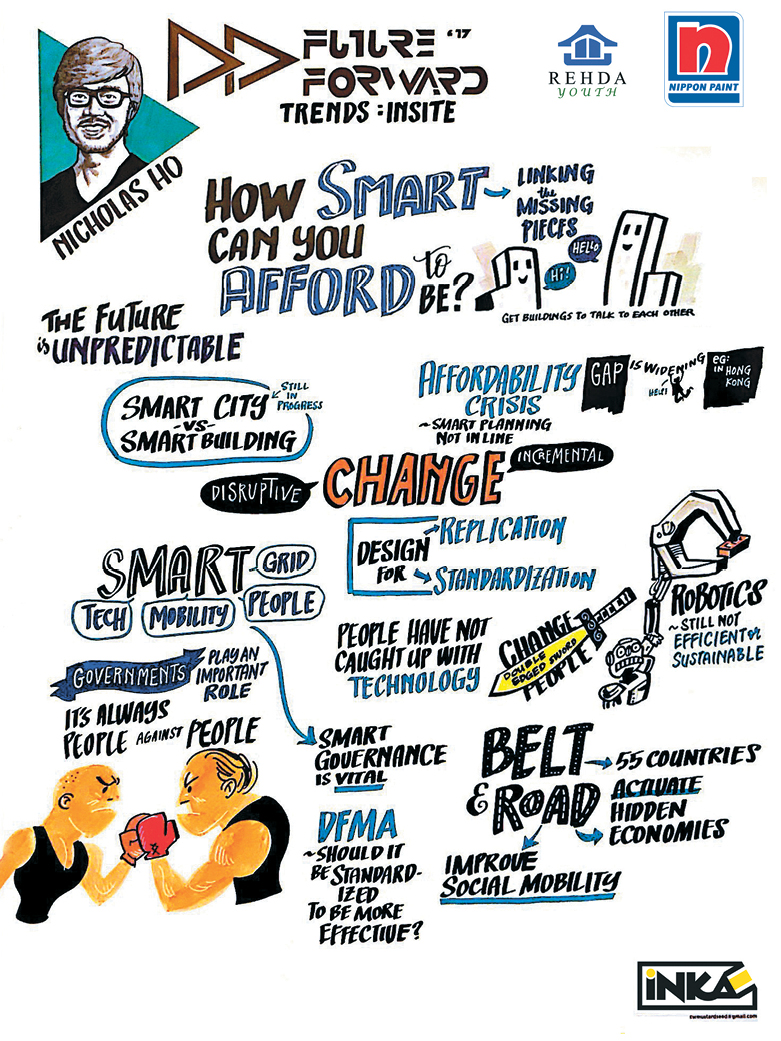 FUTURE '17
FORWARD
TRENDS : INSITE
REHDA
YOUTH
n
NIPPON PAINT
NICHOLAS HO
HOW SMART
CAN YOU
AFFORD to
BE?
LINKING
the
MISSING
PIECES
HELLO
Hi!
GET BUILDINGS TO TALK TO EACH OTHER
THE FUTURE
is UNPREDICTABLE
SMART CITY
-VS-
SMART BUILDING
STILL
IN
PROGRESS
AFFORDABILITY
CRISIS
~SMART PLANNING
NOT IN LINE
GAP
IS WIDENING
HELP!
eg:
IN HONG
KONG
DISRUPTIVE
CHANGE
INCREMENTAL
DESIGN
FOR
REPLICATION
STANDARDIZATION
SMART
GRID
TECH
MOBILITY
PEOPLE
PEOPLE HAVE NOT
CAUGHT UP WITH
TECHNOLOGY
CHANGE
DOUBLE
EDGED SWORD
PEOPLE
ROBOTICS
~STILL NOT
EFFICIENT or
SUSTAINABLE
GOVERNMENTS
PLAY AN
IMPORTANT
ROLE
IT'S ALWAYS
PEOPLE AGAINST PEOPLE
SMART
GOVERNANCE
IS VITAL
DFMA
~SHOULD IT
BE STANDARD-
IZED
TO BE MORE
EFFECTIVE?
BELT
& ROAD
55 COUNTRIES
ACTIVATE
HIDDEN
ECONOMIES
IMPROVE
SOCIAL MOBILITY
iNKA